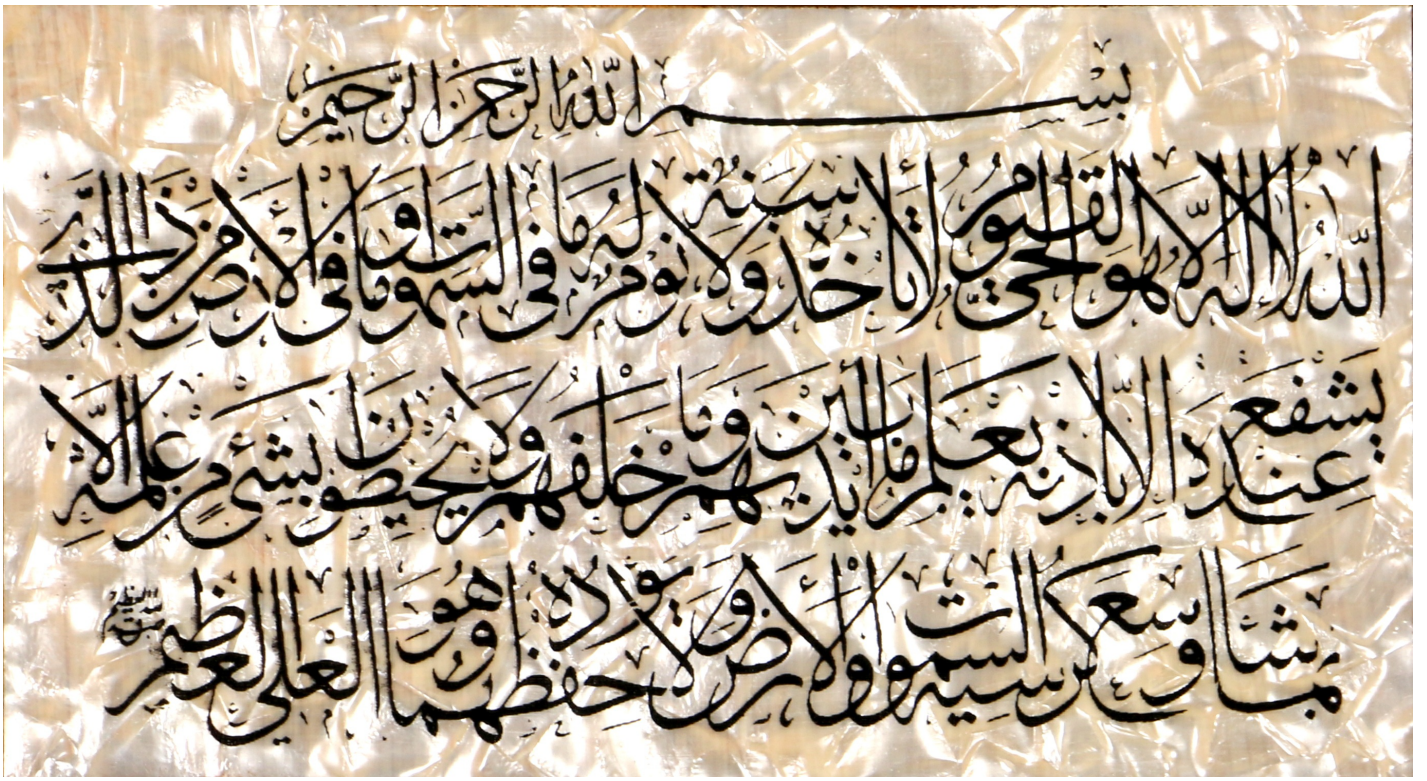 بِسْمِ اللهِ الرَّحْمٰنِ الرَّحِيْمِ
اَللهُ لَا اِلٰهَ اِلَّا هُوَ الْحَيُّ الْقَيُّومُ لَا تَأْخُذُهُ سِنَةٌ وَلَا نَوْمٌ لَهُ مَا فِى السَّمٰوَاتِ وَمَا فِى الْأَرْضِ مَنْ ذَا الَّذِى
يَشْفَعُ عِنْدَهُ اِلَّا بِاِذْنِهِ يَعْلَمُ مَا بَيْنَ اَيْدِيهِمْ وَمَا خَلْفَهُمْ وَلَا يُحِيطُونَ بِشَىْءٍ مِنْ عِلْمِهِ اِلَّا
بِمَا شَاءَ وَسِعَ كُرْسِيُّهُ السَّمٰوَاتِ وَالْأَرْضَ وَلَا يَؤُدُهُ حِفْظُهُمَا وَهُوَ الْعَلِىُّ الْعَظِيمُ